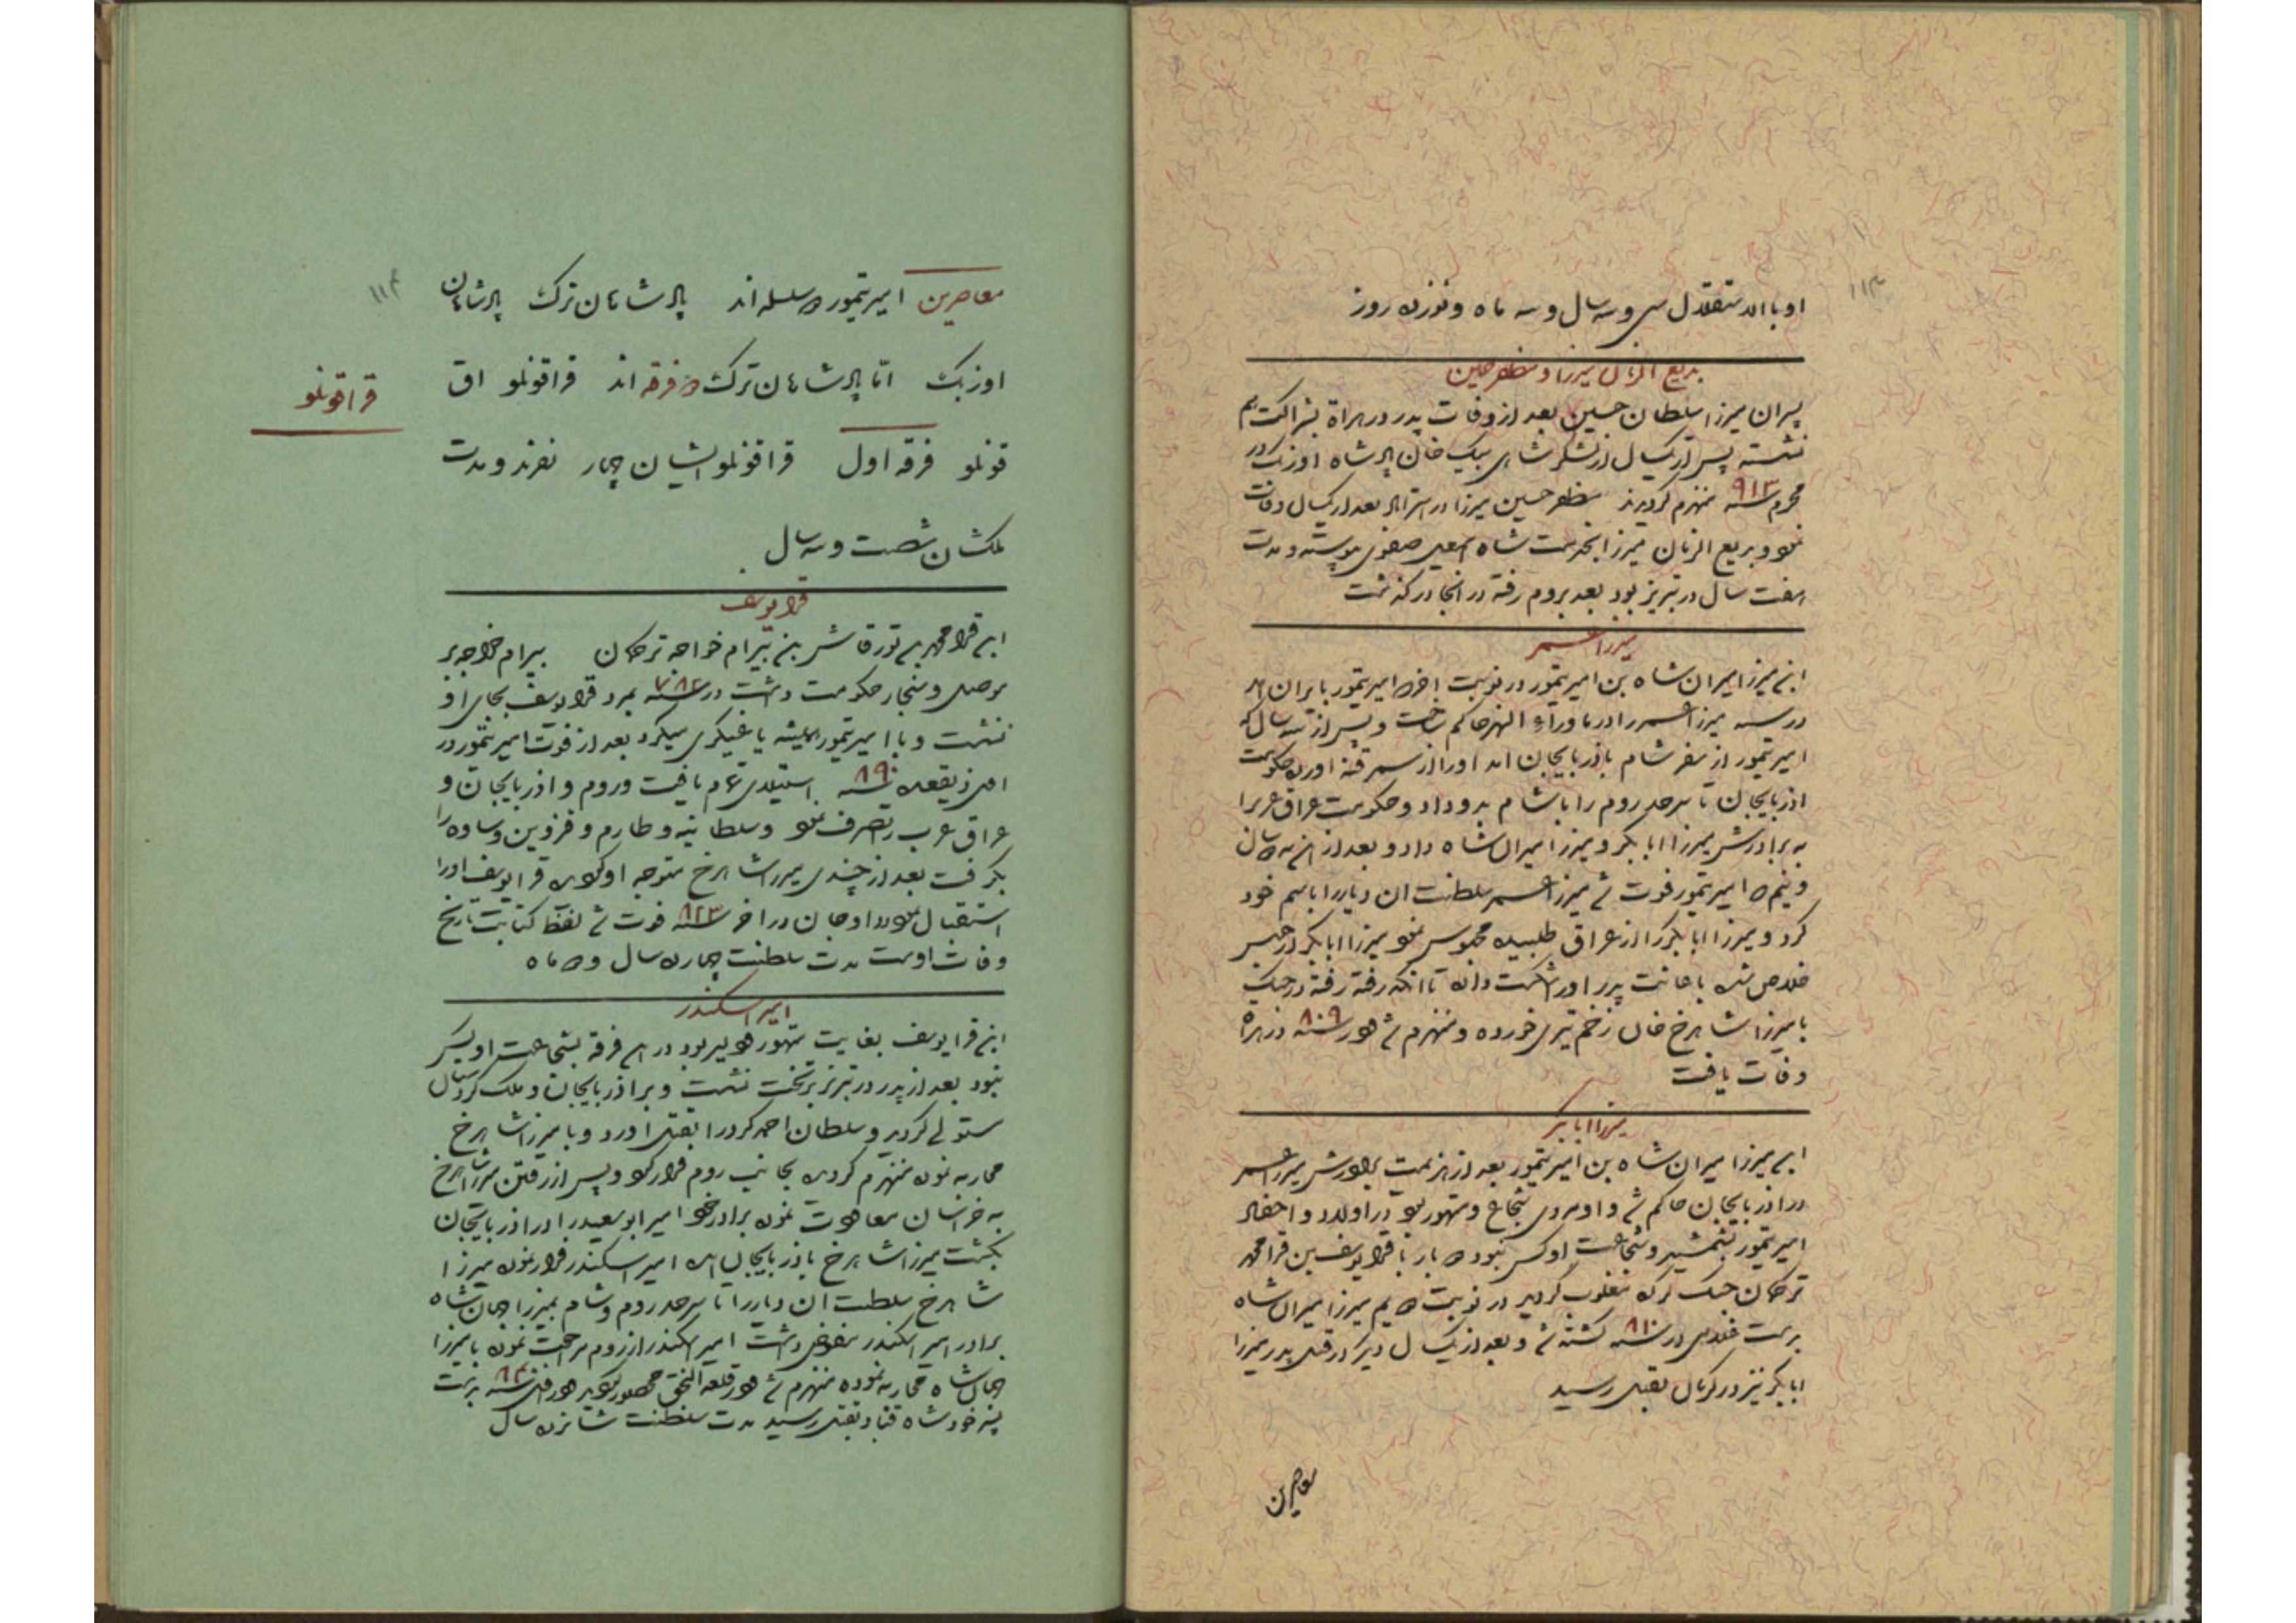 ۱۱۳
او با الاستقلال سی و سه سال و سه ماه و نوزده روز
بدیع الزمان میرزا و مظفر حسین
پسران میرزا سلطان حسین بعد از وفات پدر در هراة بشراکت هم
نشسته پس از یکسال از لشکر شاهی بیک خان پادشاه اوزبک در
محرم سنه ۹۱۳ منهزم گردیدند مظفر حسین میرزا در استراباد بعد از یکسال وفات
نمود و بدیع الزمان میرزا بخدمت شاه اسمعیل صفوی پیوسته و مدت
هفت سال در تبریز بود بعد بروم رفته در انجا درگذشت
میرزا عمر
ابن میرزا میران شاه بن امیر تیمور در نوبت اخر که امیر تیمور بایران امد
در سنه میرزا عمر را در ماوراء النهر حاکم ساخت و پس از سه سال که
امیر تیمور از سفر شام باذربایجان امد او را از سمرقند اورده حکومت
اذربایجان تا سرحد روم را با شام بدو داد و حکومت عراق عرب را
به برادرش میرزا ابابکر و میرزا میران شاه داد و بعد از ان به سال
و نیم که امیر تیمور فوت شد میرزا عمر سلطنت ان دیار را باسم خود
کرد و میرزا ابابکر را از عراق طلبیده محبوس نمود میرزا ابابکر از حبس
خلاص شده باعانت پدر او را شکست داده تا انکه رفته رفته در جنگ
با میرزا شاهرخ خان زخم تیری خورده و منهزم شد و در سنه ۸۰۹ در هراة
وفات یافت
میرزا ابابکر
ابن میرزا میران شاه بن امیر تیمور بعد از هزیمت برادرش میرزا عمر
در اذربایجان حاکم شد و او مردی شجاع و متهور بود در اولاد و احفاد
امیر تیمور بشمشیر و شجاعت او کس نبود دو بار با قرا یوسف بن قرا محمد
ترکمان جنگ کرده مغلوب گردید در نوبت دویم میرزا میران شاه
بدست در سنه ۸۱۰ کشته شد و بعد از یکسال دیگر از قتل پدر میرزا
ابابکر نیز در کرمان بقتل رسید
معاصرین
۱۱۴
معاصرین امیر تیمور دو سلسله اند پادشاهان ترک پادشاهان
اوزبک اما پادشاهان ترک دو فرقه اند قراقونلو اق
قراقونلو
قونلو فرقه اول قراقونلو ایشان چهار نفرند و مدت
ملکشان شصت و سه سال
قرا یوسف
ابن قرا محمد بن تورقاش بن بیرام خواجه ترکمان بیرام خواجه بر
موصل و سنجار حکومت داشت در سنه ۷۸۲ بمرد قرا یوسف بجای او
نشست و با امیر تیمور همیشه یاغیگری میکرد بعد از فوت امیر تیمور در
ذیقعده سنه استیلای تمام یافت و روم و اذربایجان و
عراق عرب را تصرف نمود و سلطانیه و طارم و قزوین و ساوه را
بگرفت بعد از چندی میرزا شاهرخ متوجه او گردیده قرا یوسف او را
استقبال نمود در اوجان در اخر سنه ۸۲۳ فوت شد لفظ کتابت تاریخ
وفات اوست مدت سلطنت چهارده سال و ده ماه
امیر اسکندر
ابن قرا یوسف بغایت متهور و دلیر بود در ان فرقه بشجاعت او دیگر
نبود بعد از پدر در تبریز بر تخت نشست و بر اذربایجان و ملک کردستان
مستولی گردید و سلطان احمد کرد را بقتل اورد و با میرزا شاهرخ
محاربه نموده منهزم گردیده بجانب روم فرار کرد و پس از رفتن میرزا شاهرخ
به خراسان معاودت نموده برادر خود امیر ابوسعید را در اذربایجان
بکشت میرزا شاهرخ باذربایجان امده امیر اسکندر فرار نموده میرزا
شاهرخ سلطنت ان دیار را تا سرحد روم و شام بمیرزا جهان شاه
برادر امیر اسکندر مفوض داشت امیر اسکندر از روم مراجعت نموده با میرزا
جهان شاه محاربه نموده منهزم شد و در قلعه النجق محصور گردید و در سنه بدست
پسر خود شاه قباد بقتل رسید مدت سلطنت شانزده سال